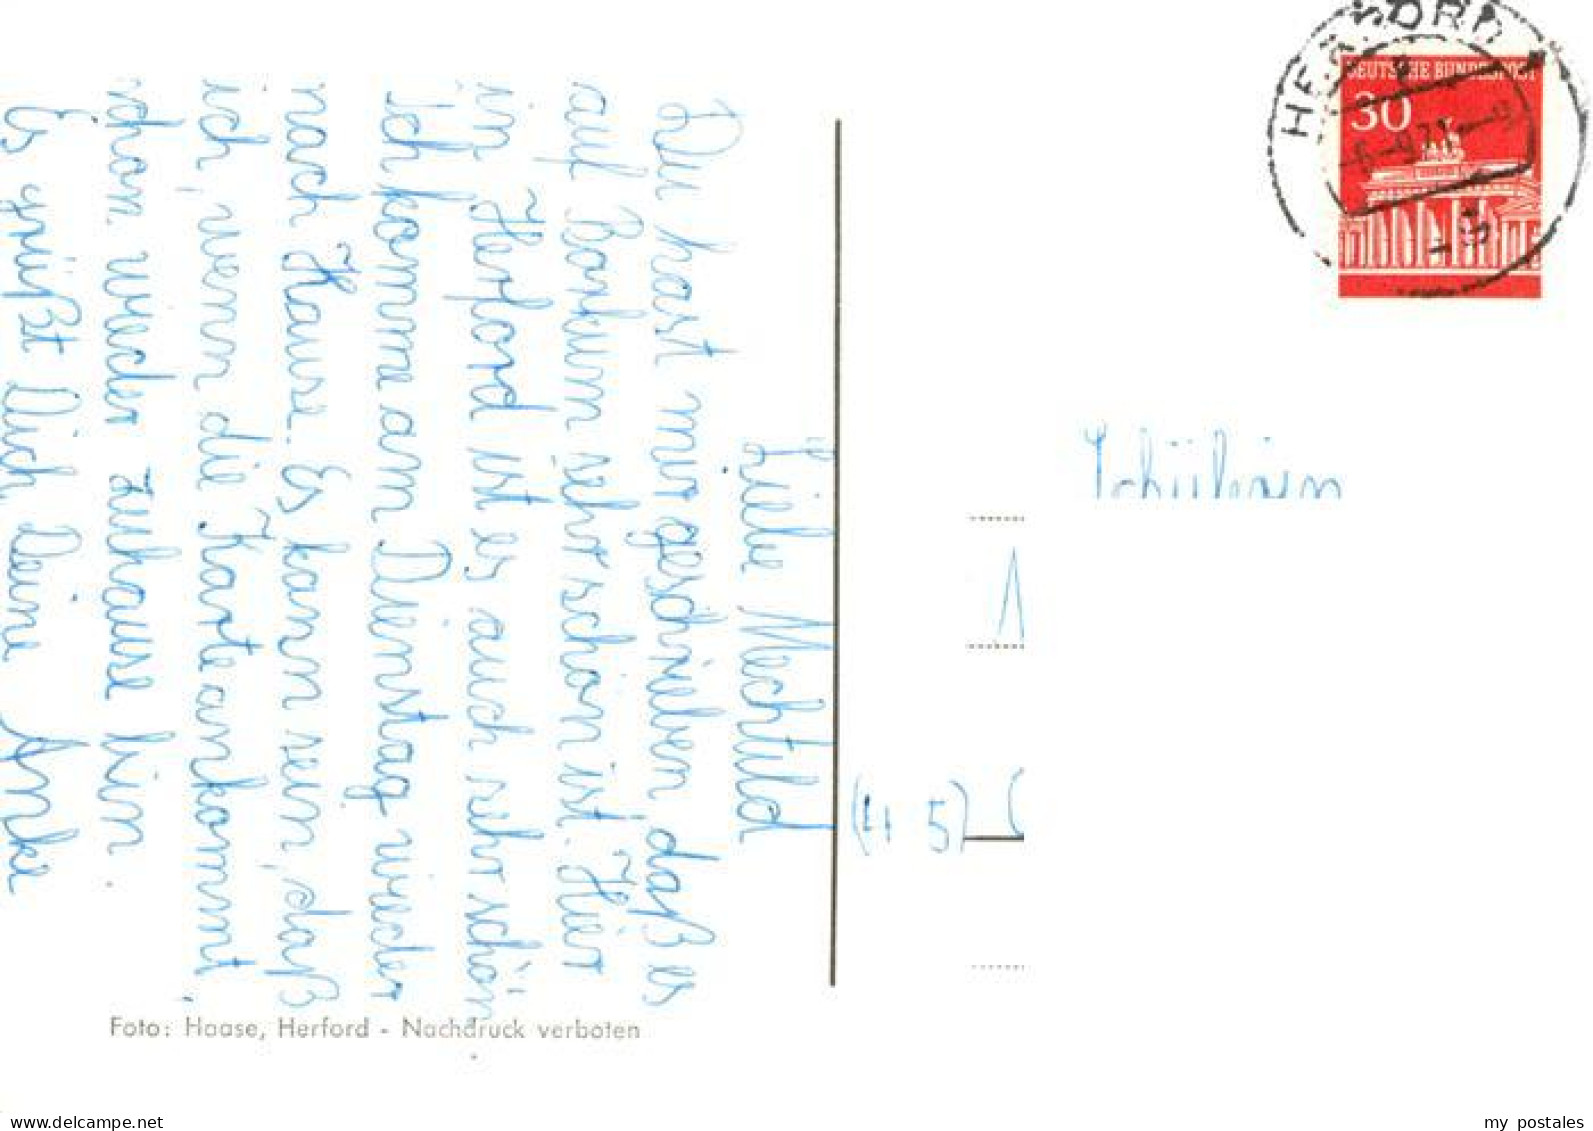 Liebe Mechtild
Du hast mir geschrieben daß es
auf Borkum sehr schon ist. Hier
in Herford ist es auch sehr schön
Ich komme am Dienstag wieder
nach Hause. Es kann sein, daß
ich, wenn die Karte ankommt,
schon wieder zuhause bin.
Es grüßt Dich Deine Anke
Foto: Haase, Herford - Nachdruck verboten
HERFORD
DEUTSCHE BUNDESPOST
30
-6.-9.71-9
Schülerin
(45)
delcampe.net
my_postales